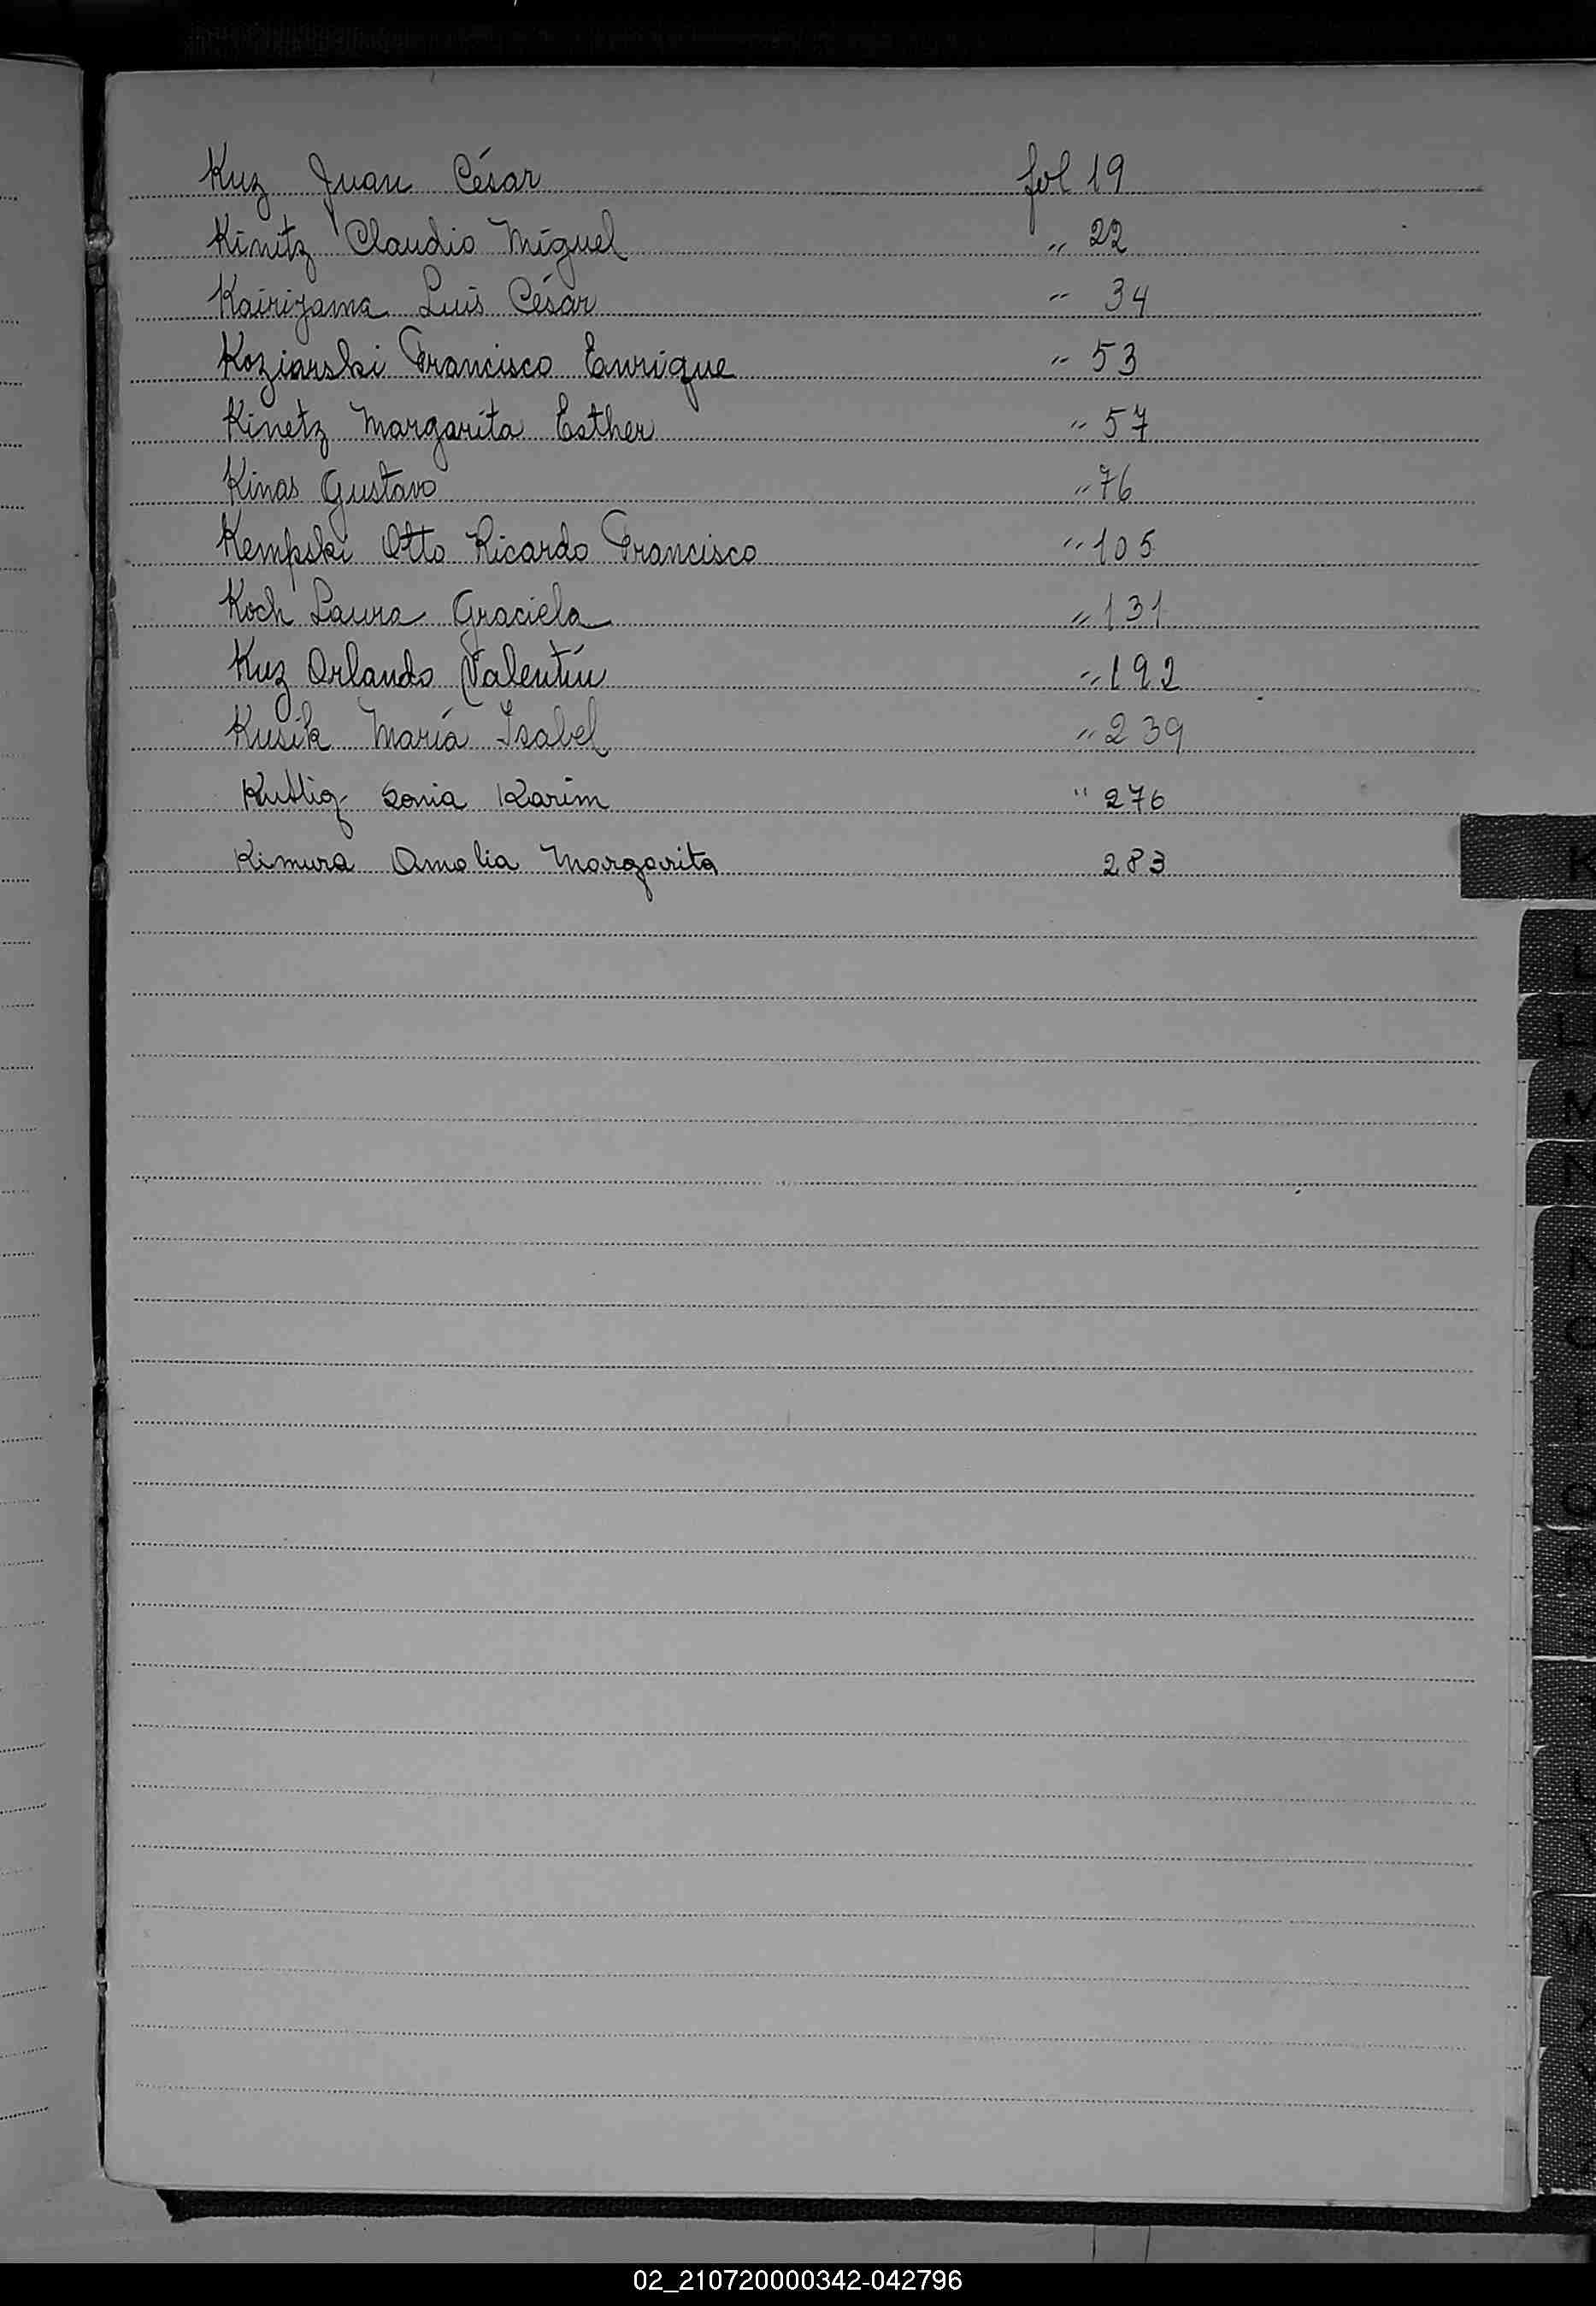 Kuz Juan César fol 19
Kinitz Claudio Miguel " 22
Kairiyama Luis César " 34
Koziarski Francisco Enrique " 53
Kinetz Margarita Esther " 57
Kinas Gustavo " 76
Kempski Otto Ricardo Francisco " 105
Koch Laura Graciela " 131
Kuz Orlando Valentín " 192
Kusik María Isabel " 239
Sonia Karim " 276
Kimura Amalia Margarita 283
K
L
M
N
02_210720000342-042796